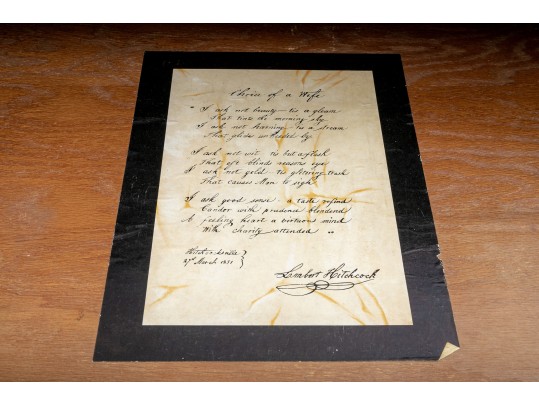 Choice of a Wife
" I ask not beauty - tis a gleam
That tints the morning sky
I ask not learning - tis a dream
That glides unheeded by.
I ask not wit - tis but a flash
That oft blinds reasons eye
I ask not gold - tis glittering trash
That causes Man to sigh
I ask good sense - a taste refind
Candor with prudence blended
A feeling heart a virtuous mind
With charity attended "
Hitchcocksville
27th March 1831
Lambert Hitchcock